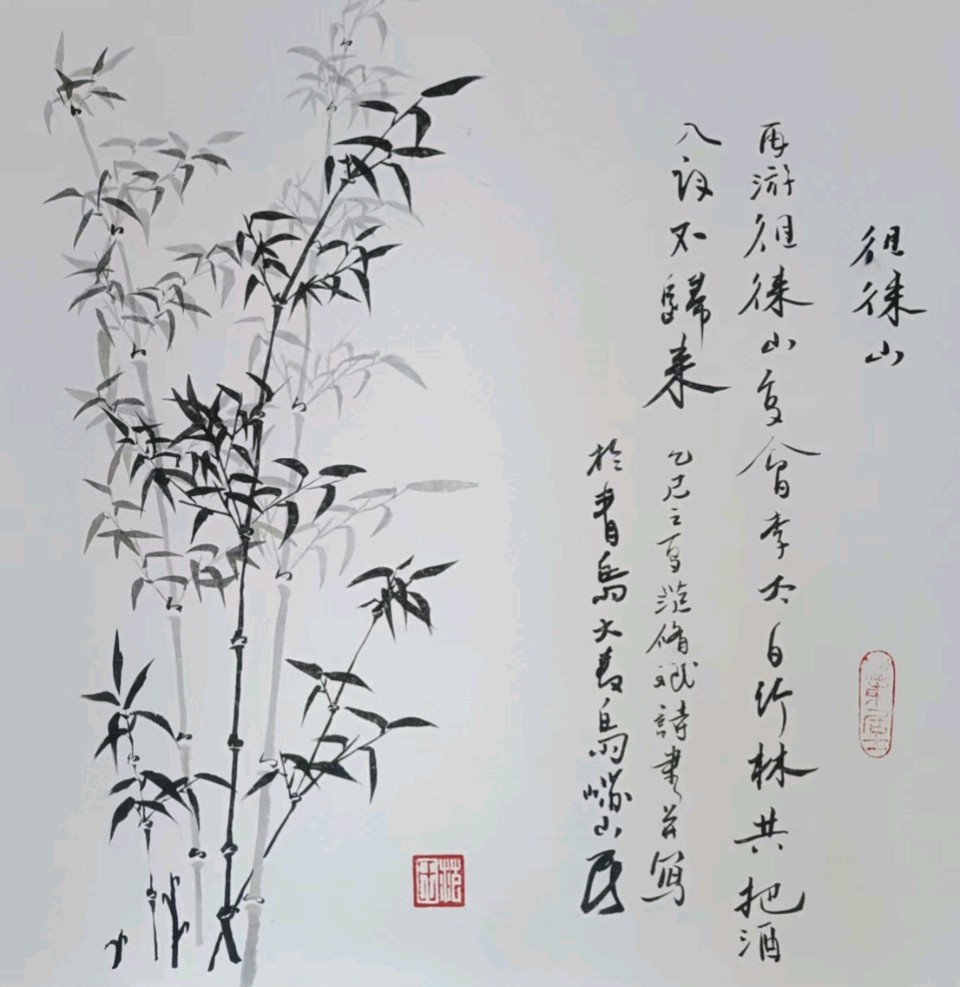 徂徕山
再游徂徕山复会李太白竹林共把酒
八不歸来
乙巳立夏范脩斌詩書并寫
於青島大島嶗山居